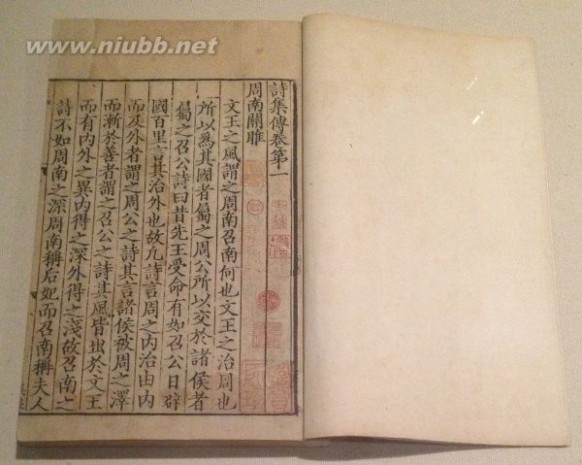 www.niubb.net
詩集傳卷第一
周南關雎
文王之風謂之周南召南何也文王之治周也
所以爲其國者屬之周公所以交於諸侯者
屬之召公詩曰昔先王受命有如召公日辟
國百里言其治外也故凢詩言周之内治由内
而及外者謂之周公之詩其言諸侯被周之澤
而漸於善者謂之召公之詩其風皆出於文王
而有内外之異内得之深外得之淺故召南之
詩不如周南之深周南稱后妃而召南稱夫人